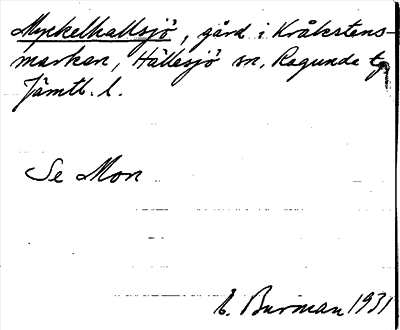 Myckelhallsjö, gård i Kråkstens-
marken, Hällesjö sn, Ragunda tg
Jämtl. l.
Se Mon
E. Burman 1931